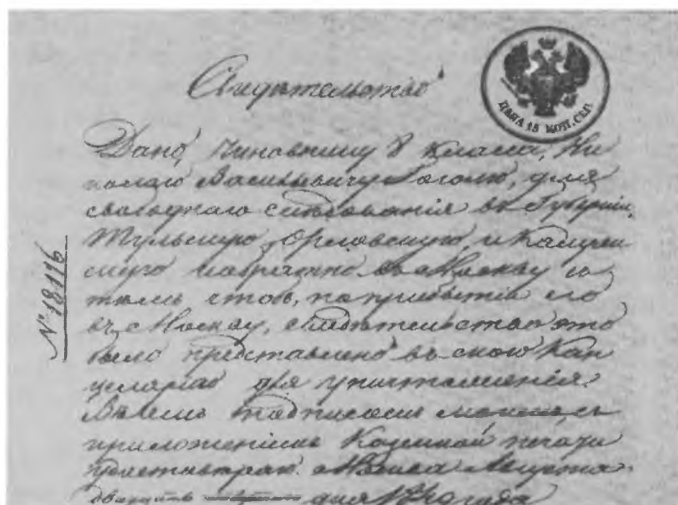 Свидѣтельство
ЦѢНА 15 КОП. СЕР.
Дано, чиновнику 8 класса, Ни
колаю Васильевичу Гоголю, для
свободнаго слѣдованія въ Губерніи
Тульскую, Орловскую, и Калуж
скую и обратно въ Москву съ
тѣмъ чтобъ, по прибытіи его
въ Москву, свидѣтельство это
было представлено въ мою Кан
целярію для уничтоженія.
За моимъ подписомъ съ
приложеніемъ Казенной печати
Москва Августа
дня года
№ 18116